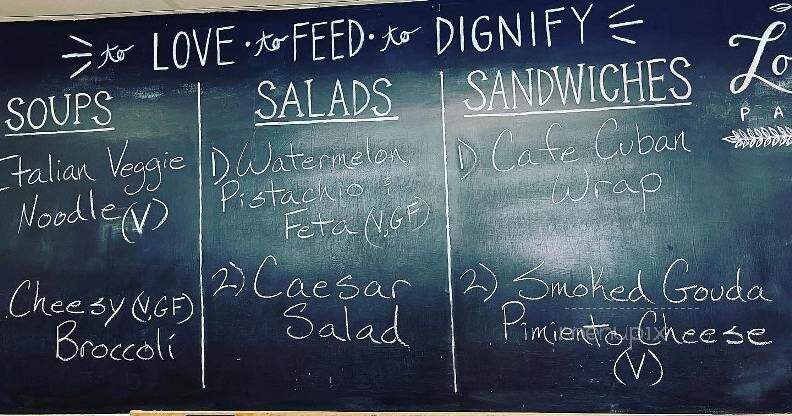 to LOVE · to FEED · to DIGNIFY
Lo
P A
SOUPS
Italian Veggie
Noodle (V)
Cheesy (V,GF)
Broccoli
SALADS
1) Watermelon,
Pistachio &
Feta (V,GF)
2) Caesar
Salad
SANDWICHES
1) Cafe Cuban
Wrap
2) Smoked Gouda
Pimiento Cheese
(V)
menupix